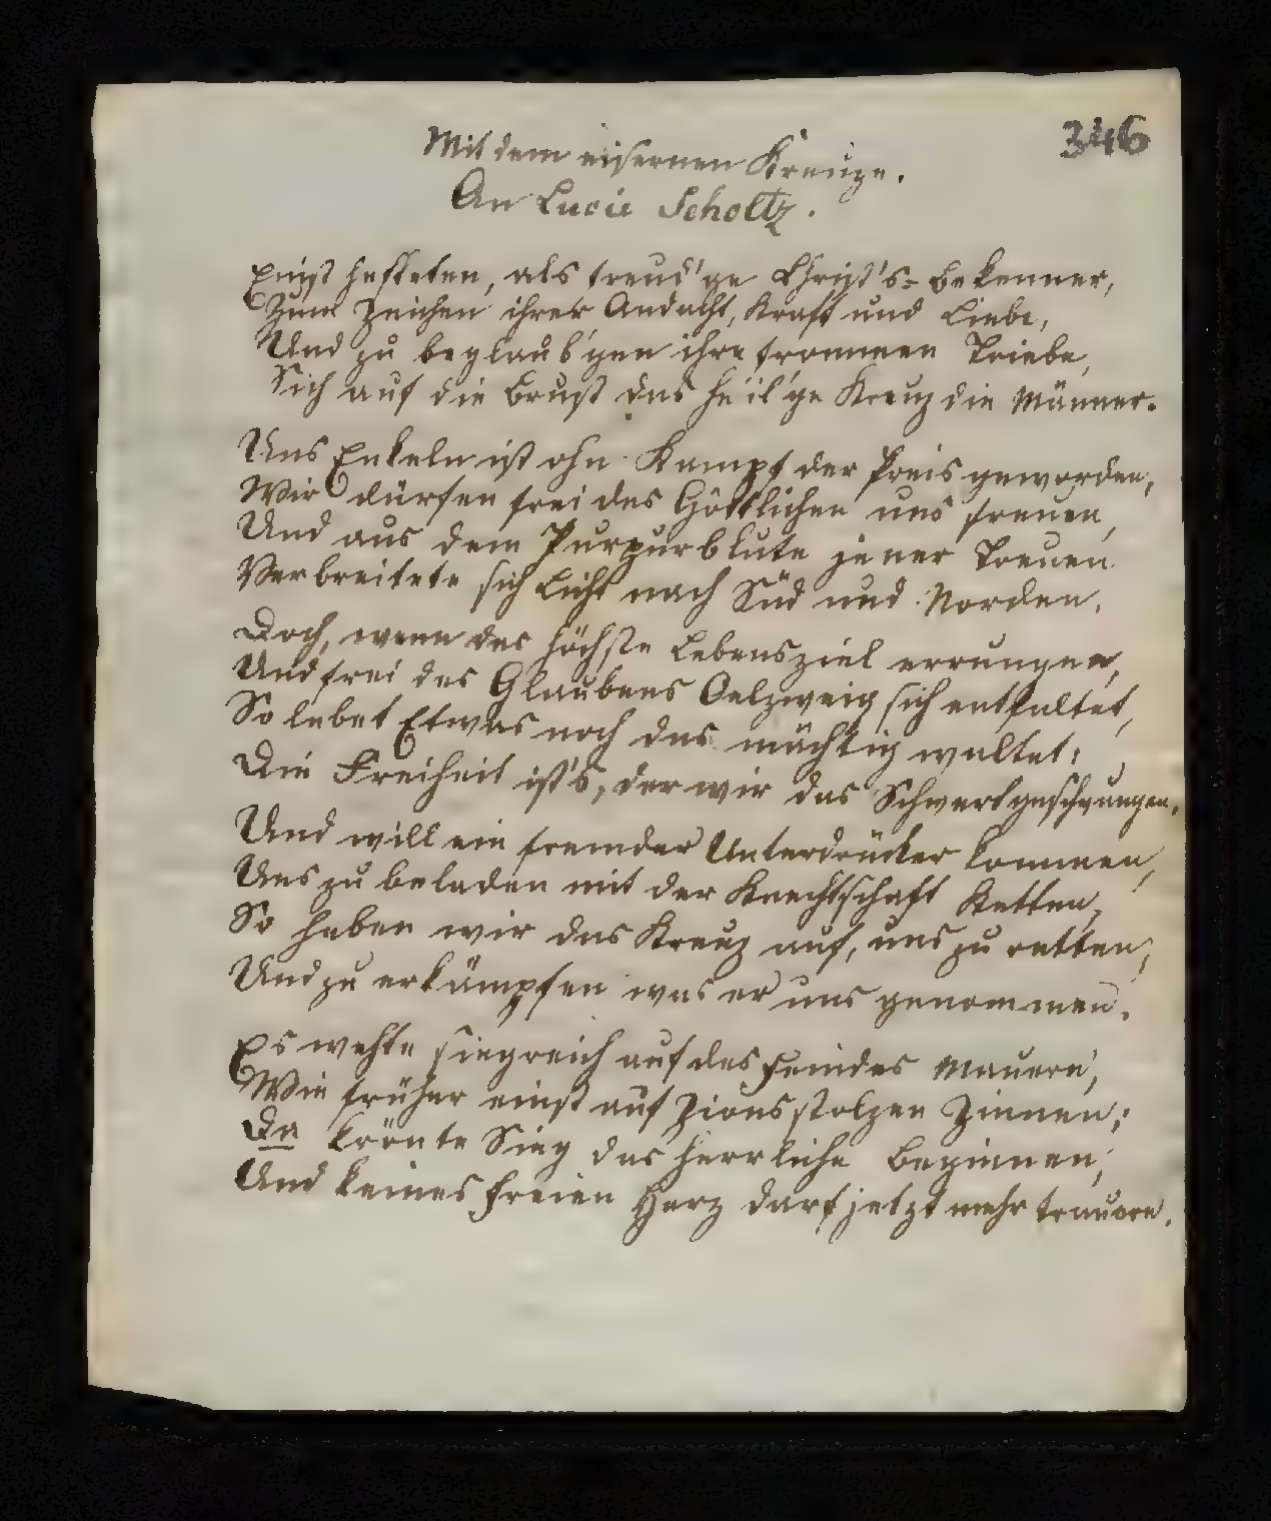 346
Mit dem eisernen Kreuze.
An Lucie Scholtz.
Einst hefteten, als freud'ge Christ's-Bekenner,
Zum Zeichen ihrer Andacht, Kraft und Liebe,
Und zu beglaub'gen ihre frommen Triebe,
Sich auf die Brust das heil'ge Kreuz die Männer.
Uns Enkeln ist ohn Kampf der Preis geworden,
Wir dürfen frei des Göttlichen uns freuen,
Und aus dem Purpurblute jener Treuen
Verbreitete sich Licht nach Süd und Norden.
Doch, wenn das höchste Lebensziel errungen,
Und frei des Glaubens Oelzweig sich entfaltet,
So lebet Etwas noch das mächtig waltet:
Die Freiheit ist's, der wir das Schwert geschwungen.
Und will ein fremder Unterdrücker kommen,
Uns zu beladen mit der Knechtschaft Ketten,
So heben wir das Kreuz auf, uns zu retten,
Und zu erkämpfen was er uns genommen.
Es wehte siegreich auf des Feindes Mauern,
Wie früher einst auf Zions stolzen Zinnen;
Da krönte Sieg das herrliche Beginnen,
Und keines Freien Herz darf jetzt mehr trauern.